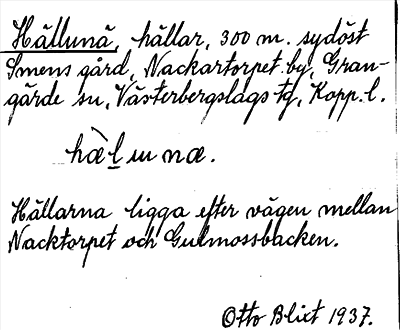 Hällunä, hällar, 300 m. sydöst
Smens gård, Nackartorpet by, Gran-
gärde sn, Västerbergslags tg, Kopp. l.
Hällarna ligga efter vägen mellan
Nacktorpet och Gulmossbacken.
Otto Blixt 1937.